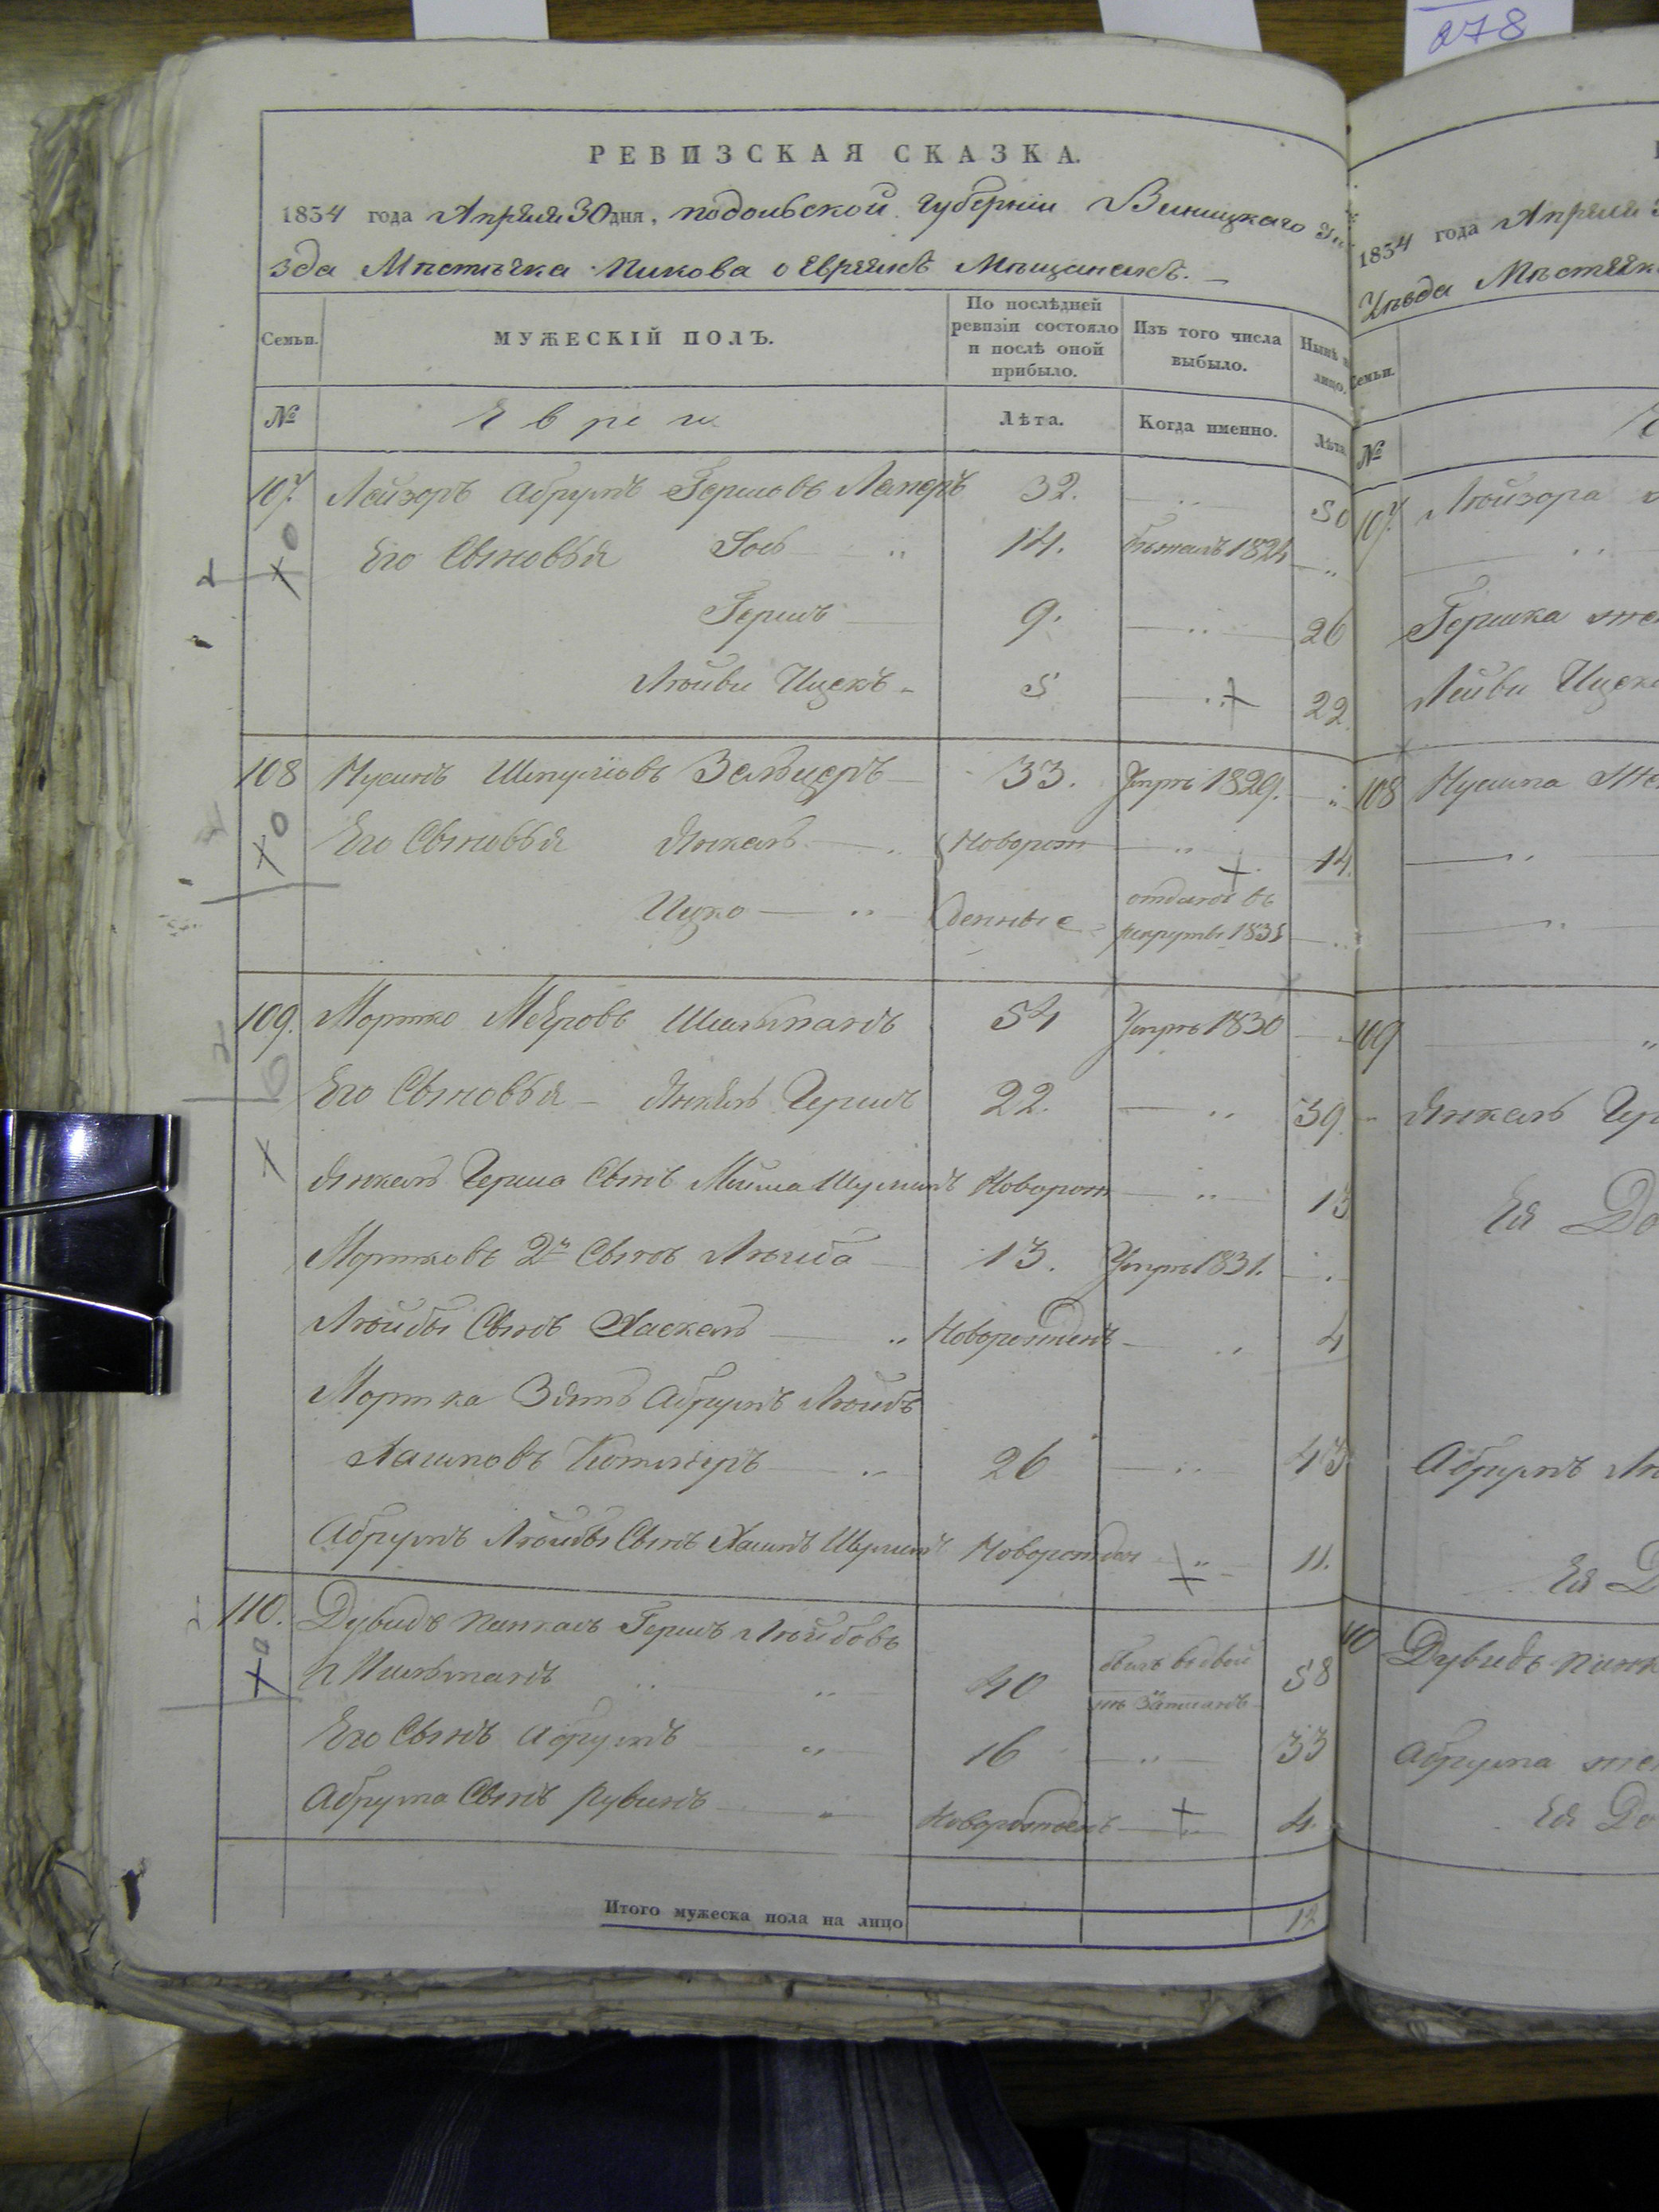 278
РЕВИЗСКАЯ СКАЗКА.
1834 года Апреля 30 дня, подольской Губерніи Виницкаго
зда Мѣстѣчка Пикова о Евреяхъ Мѣщанахъ.
Семьи. МУЖЕСКІЙ ПОЛЪ. По послѣдней ревизіи состояло и послѣ оной прибыло. Изъ того числа выбыло. Нынѣ на лицо.
№ Евреи Лѣта. Когда именно. Лѣта
107. Лейзоръ Абрумъ Гершовъ 32. 50
Его Сыновья 14. бежалъ 1824
Гершъ 9. 26
Лейви Ицекъ 5 22.
108 Нусинъ Шмулiовъ Зельцеръ 33. Умръ 1829.
Его Сыновья Янкель Новорож 14.
Ицко денные отданъ въ
рекруты 1831
109. Мортко Меэровъ Шильманъ 54 Умръ 1830
Его Сыновья Янкель Гершъ 22. 39.
Янкель Герша Сынъ Мойша Шулимъ Новорож 13
Мортковъ 2й Сынъ Лейба 13. Умръ 1831.
Лейбы Сынъ Хаскель Новорожденъ 4
Мортка Зять Абрумъ Лейбъ
Хаимовъ 26 43
Абрумъ Лейбы Сынъ Хаимъ Новорожден 11.
110. Дувидъ Пинкасъ Гершъ Лейбовъ
Шильманъ 40 58
Его Сынъ Абрумъ 16 33
Абрума Сынъ Рувинъ Новорожденъ 4.
Итого мужеска пола на лицо 12
1834 года Апреля
Уѣзда Мѣстечк
Семьи.
№
107. Лейзора
Гершка же
Лейви Ицек
108 Нусина же
109
Янкель Гер
Ея До
Абрумъ Ле
Ея Д
110 Дувидъ Пинк
Абрума же
Ея До